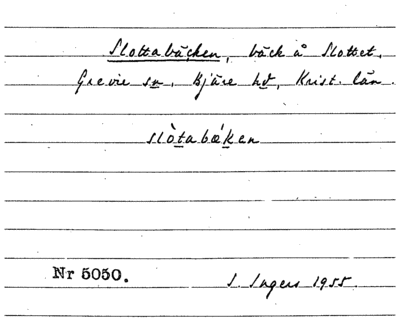 Slottabäcken, bäck å Slottet,
Grevie sn, Bjäre hd, Krist. län.
slòtabǽken
Nr 5050.
I. Ingers 1955.